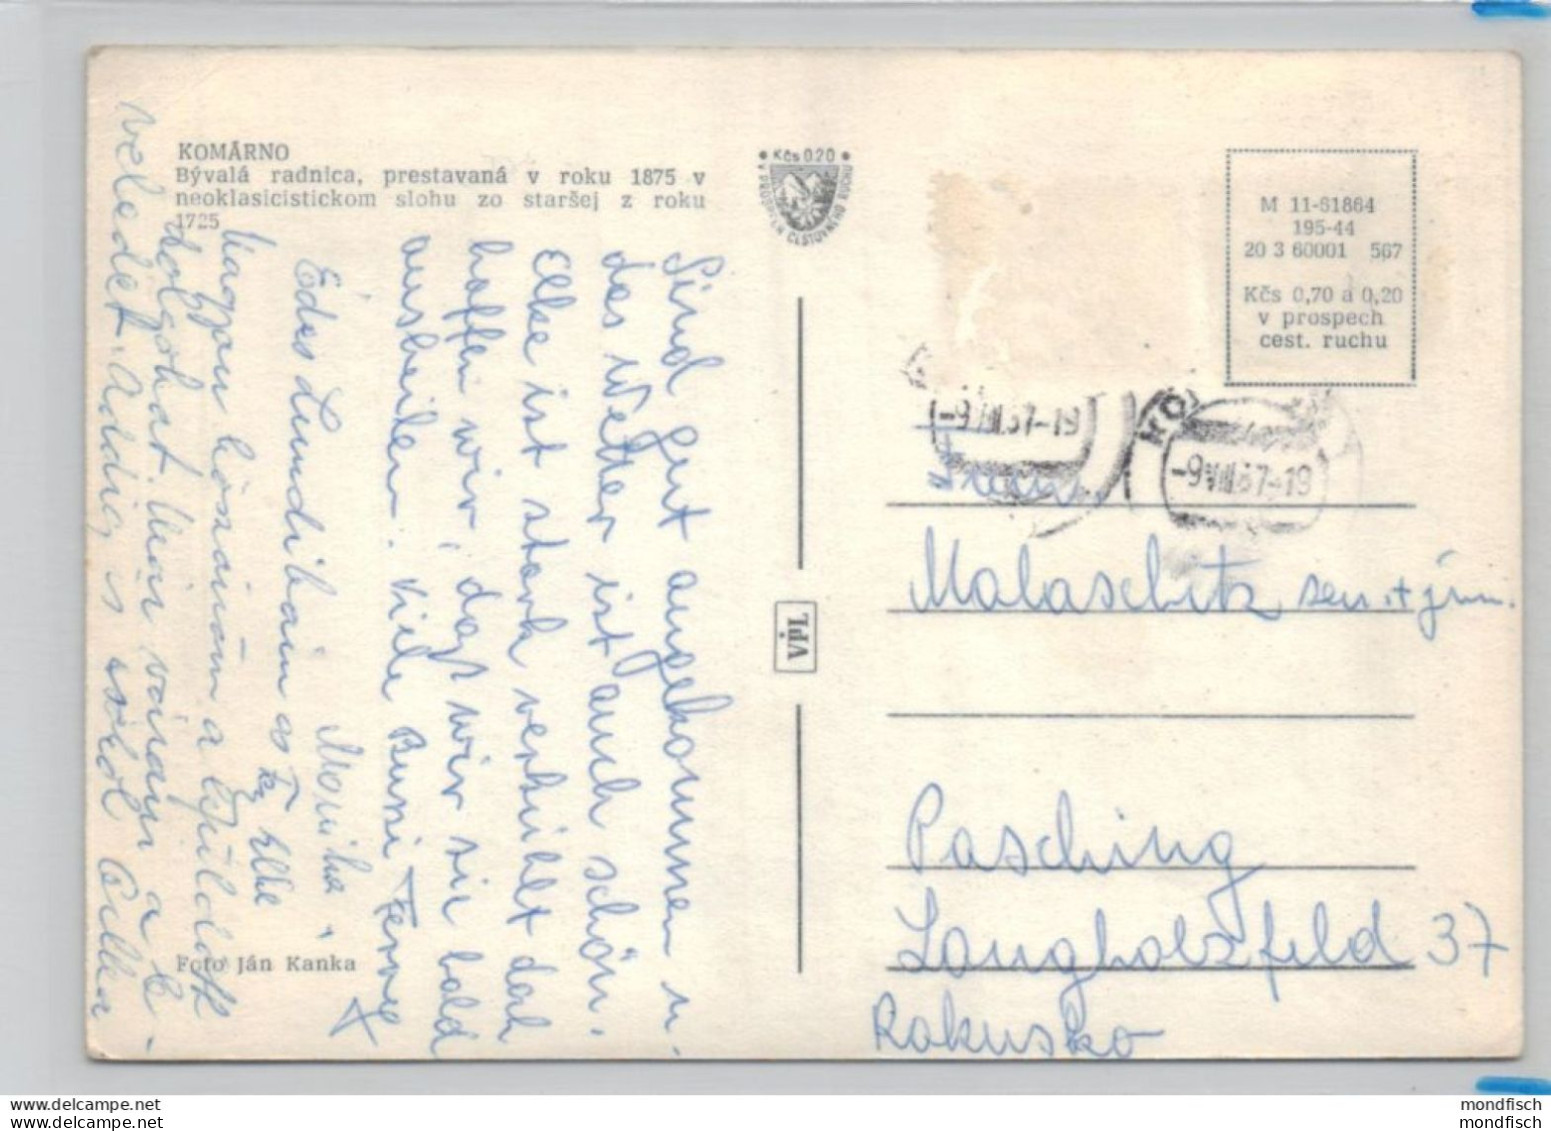 KOMÁRNO
Bývalá radnica, prestavaná v roku 1875 v
neoklasicistickom slohu zo staršej z roku
1725
Sind gut angekommen u.
das Wetter ist auch schön.
Elke ist stark verkühlt doch
hoffen wir, daß wir sie bald
ausheilen. Viele Bussi Ferry
Monika
Edes Lundibaim és Elke
Nagyon köszönöm a
dolgokat. Már várom a
veledet. Addig is sokol
Foto Ján Kanka
Kčs 0.20
V PROSPECH CESTOVNÉHO RUCHU
VPL
M 11-61864
195-44
20 3 60001 567
Kčs 0,70 a 0,20
v prospech
cest. ruchu
-9.VIII.67-19
-9.VIII.67-19
Fam.
Malaschitz sen. + jun.
Pasching
Langholzfeld 37
Rakusko
delcampe.net
mondfisch
delcampe.net
mondfisch